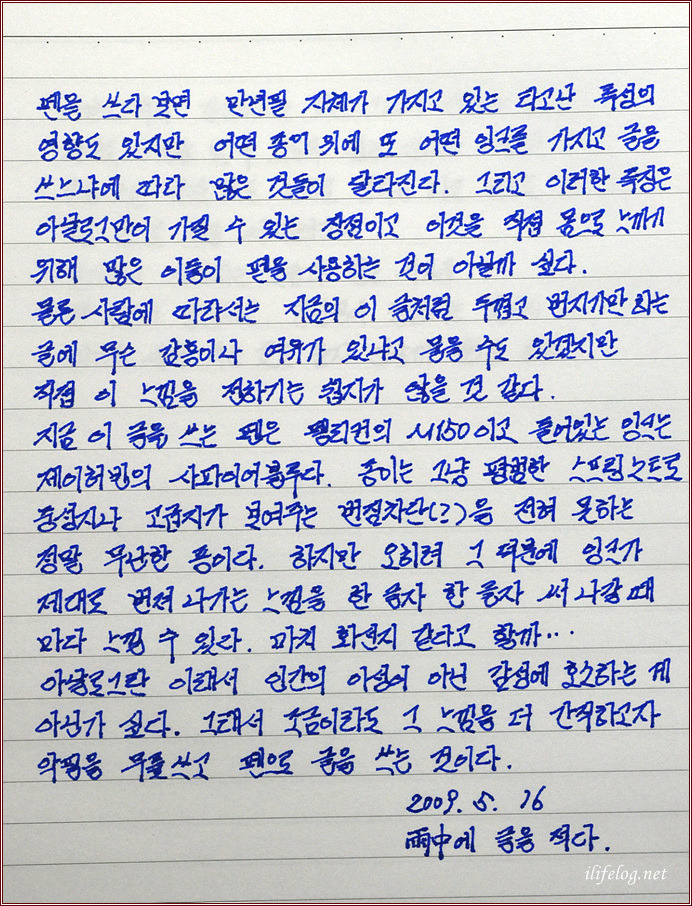 펜을 쓰다 보면 만년필 자체가 가지고 있는 타고난 특성의
영향도 있지만 어떤 종이 위에 또 어떤 잉크를 가지고 글을
쓰느냐에 따라 많은 것들이 달라진다. 그리고 이러한 특징은
아날로그만이 가질 수 있는 장점이고 이것을 직접 몸으로 느끼기
위해 많은 이들이 펜을 사용하는 것이 아닐까 싶다.
물론 사람에 따라서는 지금의 이 글처럼 두껍고 번지기만 하는
글에 무슨 감흥이나 여유가 있냐고 물을 수도 있겠지만
직접 이 느낌을 전하기는 쉽지가 않을 것 같다.
지금 이 글을 쓰는 펜은 펠리컨의 M150이고 들어있는 잉크는
제이허빈의 사파이어블루다. 종이는 그냥 평범한 스프링노트로
중성지나 고급지가 보여주는 번짐차단(?)을 전혀 못하는
정말 무난한 종이다. 하지만 오히려 그 때문에 잉크가
제대로 번져 나가는 느낌을 한 글자 한 글자 써 나갈 때
마다 느낄 수 있다. 마치 화선지 같다고 할까...
아날로그란 이래서 인간의 이성이 아닌 감성에 호소하는 게
아닌가 싶다. 그래서 조금이라도 그 느낌을 더 간직하고자
악필을 무릅쓰고 펜으로 글을 쓰는 것이다.
2009. 5. 16
雨中에 글을 적다.
ilifelog.net